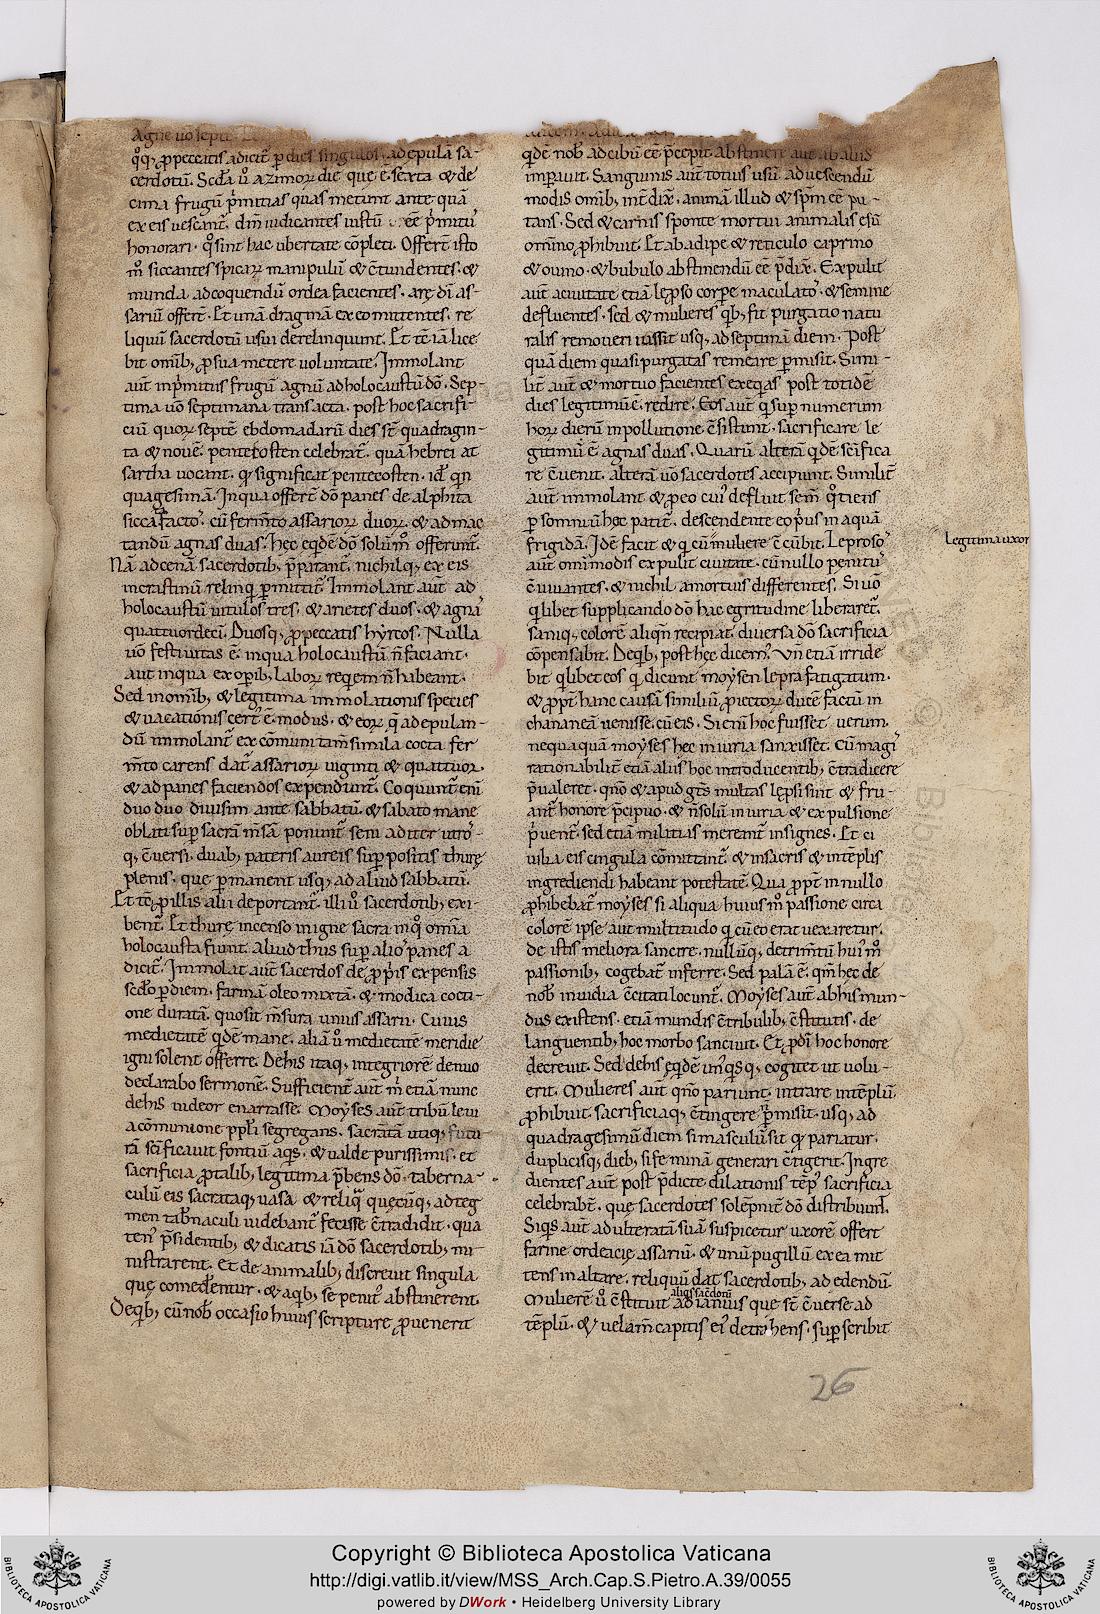 Agne uo septe
q̊q; ꝓpeccatis adicit᷑ ꝑ dies singulos. adepulā sa-
cerdotū. Scđa ů azimoꝝ die que ē sexta & de
cima frugū pͥmitias quas metunt ante quā
ex eis uescant᷑. dm̄ iudicantes iustū eē pͥmitu᷒
honorari. qͦ sint hac ubertate cōpleti. Offert᷑ isto
mͦ siccantes spicaꝝ manipulū & ↄ̄tundentes. &
munda adcoquendū ordea facientes. arę dī as-
sariū offert᷑. Et unā dragmā ex eo mittentes. re
liquū sacerdotū usui derelinquunt. Et tē iā lice
bit omib; ꝓ sua metere uoluntate. Immolant
aut̄ inpͥmitiis frugū agnū adholocaustū dō. Sep-
tima uō septimana transacta. post hoc sacrifi-
ciū quoꝝ septē ebdomadarū dies st̄ quadragin-
ta & nouē. pentecosten celebrant᷑. quā hebrei at
sartha uocant. qđ significat pentecosten. idē qn̄
quagesimā. Inqua offert᷑ dō panes de alphita
sicca factoͥ. cū ferm̄to assarioꝝ duoꝝ. & admac
tandū agnas duas. Hęc eqͥde dō solūm offerunt᷑.
Nā adcenā sacerdotib; p̄parant᷑. nichilq; ex eis
incrastinū relinqͥ ꝑmittit᷑. Immolant aut̄ ad
holocaustū uitulos tres. & arietes duos. & agnͣ
quattuordeci. Duosq; ꝓpeccatis hyrcos. Nulla
uō festiuitas ē. inqua holocaustū n̄ faciant.
aut inqua ex opib; laboꝝ reqͥem n̄ habeant.
Sed inomib; & legitima immolationis species
& uacationis cert᷒ ē modus. & eoꝝ qͥ adepulan-
dū immolant᷑ ex cōmuni tam̄ simila cocta fer
m̄to carens dat᷑ assarioꝝ uiginti & quattuor.
& ad panes faciendos expendunt᷑. Coquunt᷑ eni
duo duo diuisim ante sabbatū. & sabato mane
oblati suꝑ sacrā m̄sā ponunt᷑ seni aditer utrō-
q; ↄ̄uersi. duab; pateris aureis suꝑpositis thurę
plenis. que ꝑmanent usq; ad aliud sabbatū.
Et tē ꝓ illis alii deportant᷑. illi ů sacerdotib; exi-
bent᷑. Et thurę incenso in igne sacra inqͦ omīa
holocausta fiunt. aliud thus suꝑ alioͥ panes a
dicit᷑. Immolat aut̄ sacerdos de ꝓpͥis expensis
scđo ꝑ diem. farinā oleo mixtā. & modica cocti-
one duratā. quosit m̄sura unius assarii. Cuius
medietatē qͥdē mane. aliā ů medietatē meridie
igni solent offerre. Dehis itaq; integriorē denuo
declarabo sermonē. Sufficient aut̄ m̄ etiā nunc
dehis uideor enarrasse. Moyses aut̄ tribū leui
acōmunione ppl̄i segregans. sacratā utiq; futu
rā scīficauit fontiū aqͥs. & ualde purissimis. et
sacrificia ꝓ talib; legitima p̄bens dō. taberna-
culū eis sacrataq; uasa & reliqͣ quęcūq; ad teg
men tab̄naculi uidebant᷑ fecisse ↄ̄tradidit. qua
ten᷒ p̄sidentib; & dicatis iā dō sacerdotib; mi
nistrarent. Et de animalib; discreuit singula
quę comedentur. & aqͥb; se penit᷒ abstinerent.
Deqͥb; cū nob̄ occasio huius scripture ꝓuenerit
qͥdē nob̄ ad cibū eē p̄cepit. abstinere aut ab aliis
imperauit. Sanguinis aut̄ totius usū aduescendū
modis omib; int̄dix. animā illud & spm̄ eē pu-
tans. Sed & carnis sponte mortui animalis esū
omnino ꝓhibuit. Et abadipe & reticulo caprino
& ouino. & bubulo abstinendū eē p̄dix. Expulit
aut̄ aciuitate etiā lęproso corpe maculatoͥ. & semine
defluentes. sed & mulieres qͥb; fit purgatio natu
ralis remoueri iussit usq; ad septimā diem. Post
quā diem quasi purgatas remeare ꝑmisit. Simi-
lit̄ aut̄ & mortuo facientes exeqͥas post totidē
dies legitimū ē redire. Eos aut̄ qͥ suꝑ numerum
hoꝝ dierū in pollutione ↄ̄sistunt. sacrificare le
gitimū ē agnas duas. Quarū alterā qͥdē scīfica
re ↄ̄uenit. alterā uō sacerdotes accipiunt. Similit̄
aut̄ immolant & ꝓ eo cui᷒ defluit sem̄. qͦtiens
ꝑ somniū hęc patit᷑. descendente eo pͥus in aquā
frigidā. Idē facit & qͥ cū muliere ↄ̄cūbit. Leprosoͥ
aut̄ omimodis expulit ciuitate. cū nullo penitu᷒
ↄ̄uiuantes. & nichil amortuis differentes. Si uō
qͥlibet supplicando dō hac egritudine liberaret᷑.
saniq; colorē aliqn̄ recipiat. diuersa dō sacrificia
cōpensabit. Deqͥb; post hęc dicem᷒. Vn̄ etiā irride
bit qͥlibet eos qͥ dicunt moysen lepra fatigatum.
& ꝓpt̄ hanc causā similiū ꝓiectoꝝ ducē factū in
chananeā uenisse. cū eis. Si eni hoc fuisset uerum.
nequaquā moyses hęc iniuria sanxisset. cū magi᷒
rationabilit̄ etiā aliis hoc introducentib; ↄ̄tradicere
p̄ualeret. qn̄o & apud gtͤs multas lep̄si sint & fru-
ant᷑ honore p̄cipuo. & n̄solū iniuria & expulsione
p̄uent᷑. sed etiā militias mereant᷑ insignes. Et ci
uilia eis cingula cōmittant᷑. & insacris & intēplis
ingrediendi habeant potestatē. Qua ꝓpt̄ innullo
ꝓhibebat᷑ moyses si aliqua huius mͦ passione circa
colorē ipse aut multitudo qͥ cū eo erat uexaretur.
de istis meliora sancire. nullūq; detrim̄tū hui᷒mͦ
passionib; cogebat᷑ inferre. Sed palā ē. qm̄ hęc de
nob̄ inuidia ↄ̄citati locunt᷑. Moyses aut̄ abhis mun-
dus existens. etiā mundis ↄ̄tribulib; ↄ̄stitutis. de
languentib; hoc morbo sanciuit. Et ꝓ dī hoc honore
decreuit. Sed dehis eqͥdē un᷒qͥsq; cogitet ut uolu-
erit. Mulieres aut̄ qn̄o pariunt. intrare intēplū.
ꝓhibuit. sacrificiaq; ↄ̄tingere ꝑmisit. usq; ad
quadragesimū diem si masculū sit qđ pariatur.
duplicisq; dieb; si feminā generari ↄ̄tigerit. Ingre
dientes aut̄ post p̄dicte dilationis tēp᷒ sacrificia
celebrabt̄. que sacerdotes solēpnit̄ dō distribuunt᷑.
Siqͥs aut̄ adulteratā suā suspicetur uxorē offert
farine ordeacię assariū. & unū pugillū ex ea mit
tens in altare. reliquū dat᷑ sacerdotib; ad edendū.
aliqͥs sacͤdotū
Mulierē ů ↄ̄stituit ad ianuas que st̄ ↄ̄uerse ad
tēplū. & uelam̄ capitis ei᷒ detrahens. suꝑscribit
Legitima uxor
26
Copyright © Biblioteca Apostolica Vaticana
http://digi.vatlib.it/view/MSS_Arch.Cap.S.Pietro.A.39/0055
powered by DWork • Heidelberg University Library